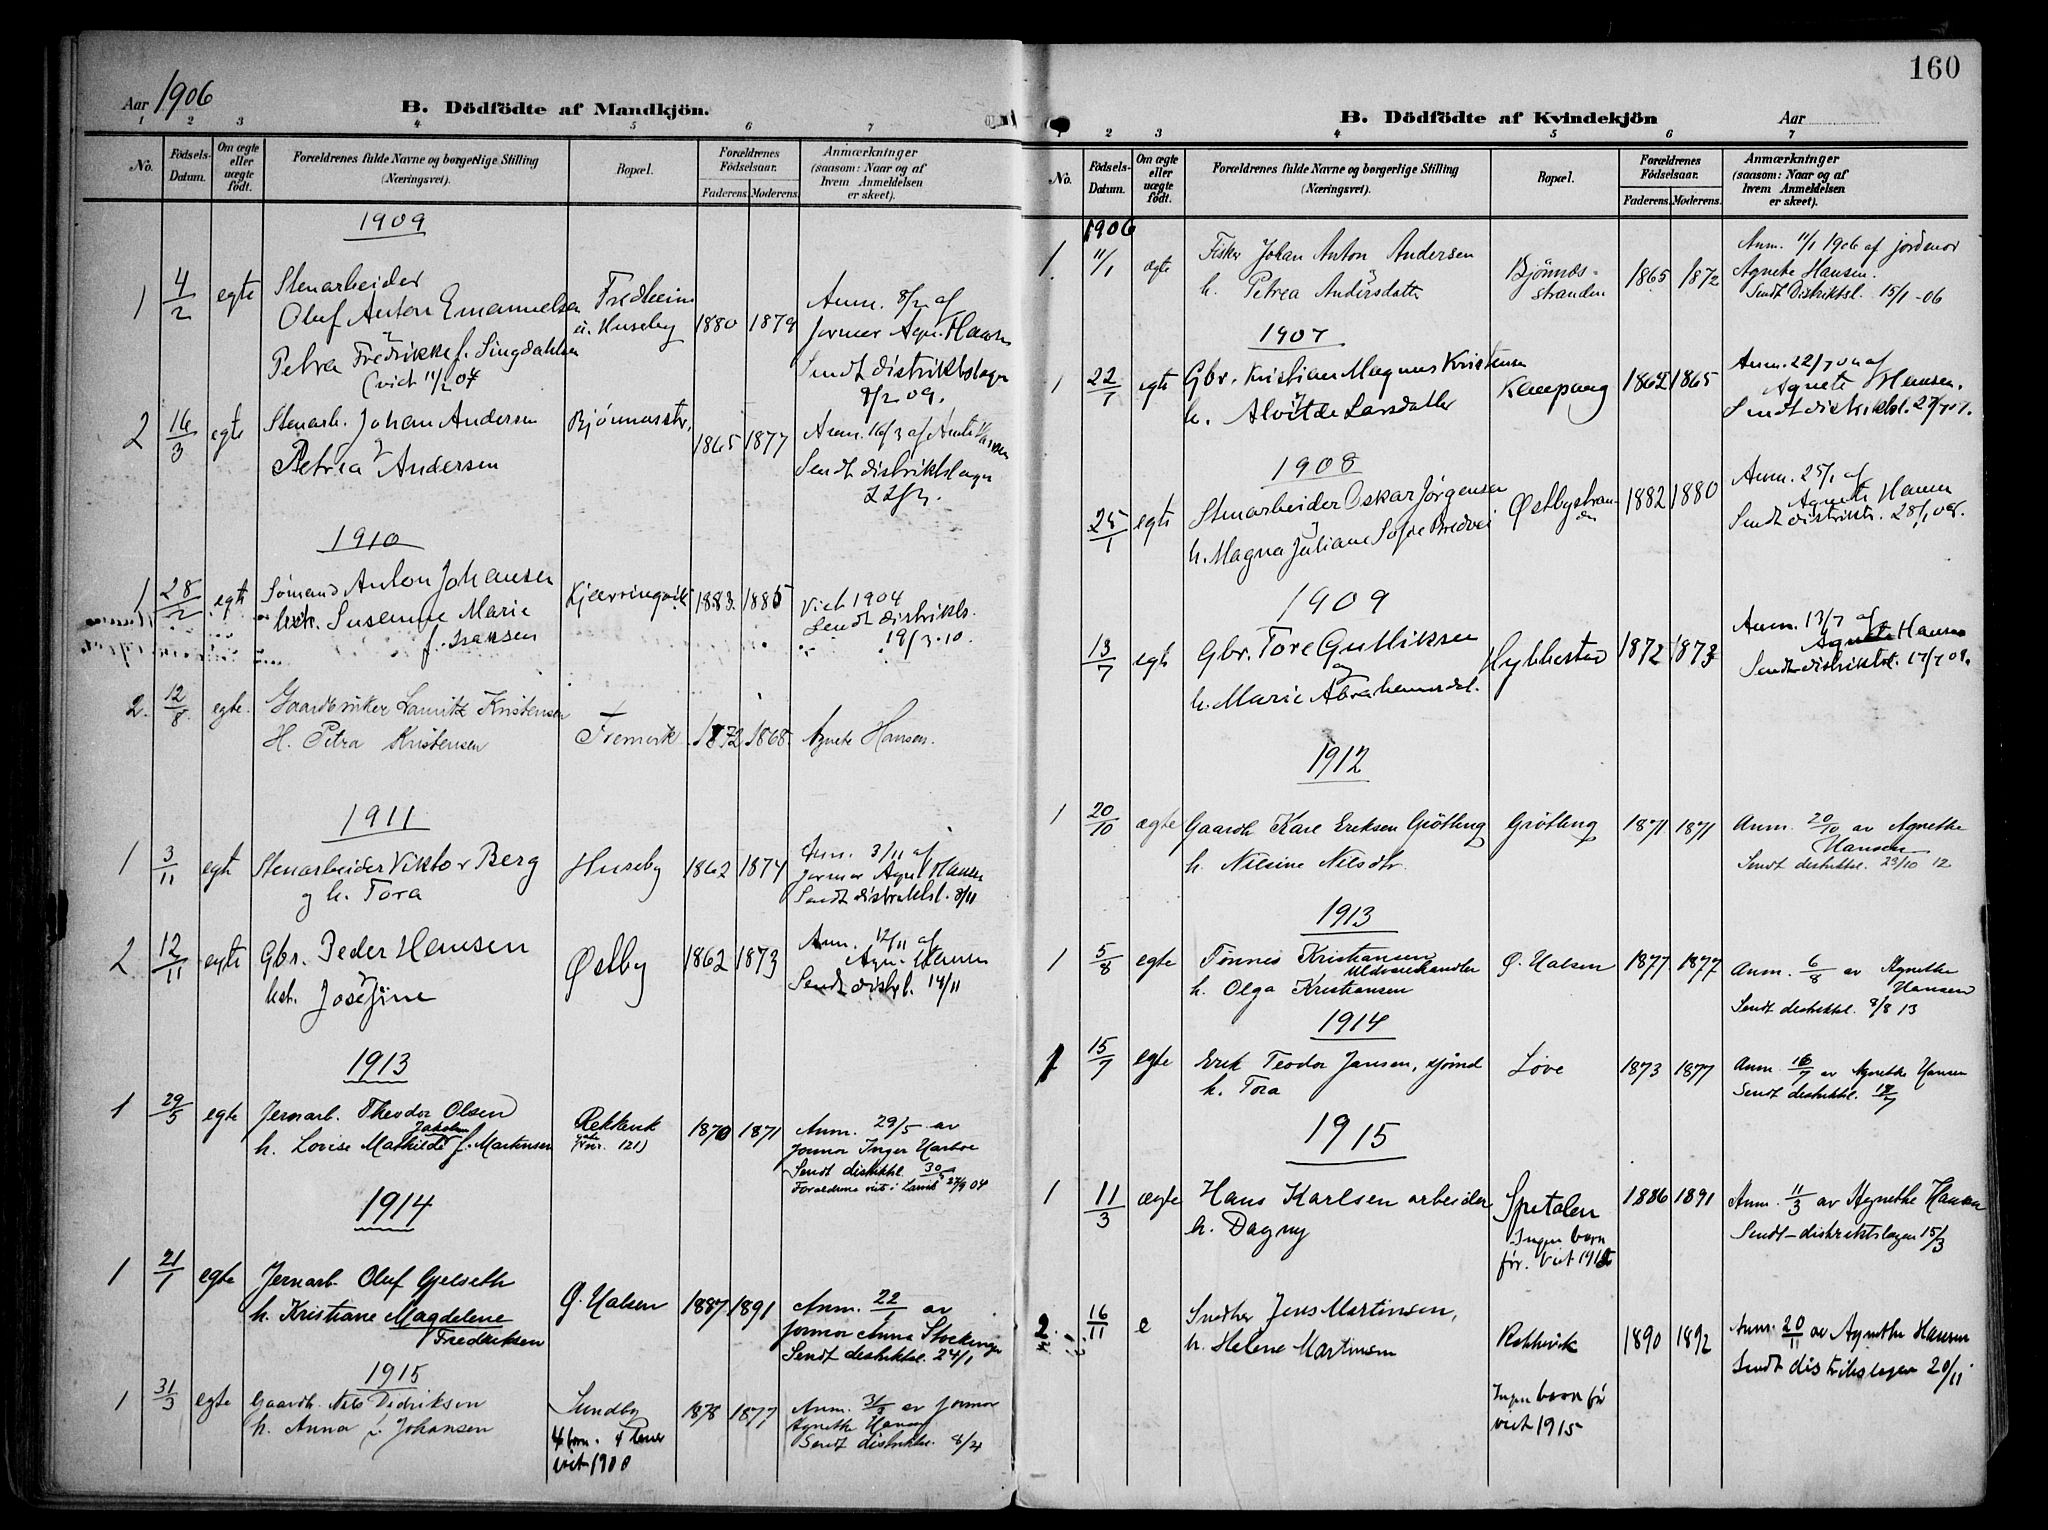 Aar 1906
B. Dödfödte af Mandkjön.
1 2 3 4 5 6 7
No.
Födsels-Datum.
Om ægte eller uægte födt.
Forældrenes fulde Navne og borgerlige Stilling (Næringsvei).
Bopæl.
Forældrenes Födselsaar.
Faderens. Moderens.
Anmærkninger (saasom: Naar og af hvem Anmeldelsen er skeet).
1909
1 4/2 egte Stenarbeider
Oluf Anton Emanuelsen
Petra Fredrikke f. Singdahlsen
(viet 11/2 07
Fredheim
u. Huseby
1880 1879
Anm. 8/2 af
Jormor Agn. Hansen
Sendt distriktslægen
9/2 09.
2 16/3 egte Stenarb. Johan Andersen
Petrea Andersen
Bjönnesstr.
1865 1877
Anm. 16/3 af
Sendt distriktslægen
22/3.
1910
1 28/2 egte Sømand Anton Johansen
hstr. Susanne Marie
f. Isaksen
Kjærringvik
1883. 1885
Viet 1904
Sendt distriktsl.
19/3.10.
2. 12/8. egte. Gaardbruker Lauritz Kristensen
H. Petra Kristensen
Fremvik
1872 1868.
Agnete Hansen.
1911
1 3/11 egte Stenarbeider Viktor Berg
og h. Tora
Huseby
1862 1874
Anm. 3/11 af
Jormor Agnet Hansen
Sendt distriktsl. 8/11
2 12/11 egte Gbr. Peder Hansen
hst. Josefine
Østby
1862 1873
Anm. 12/11 af
Agn. Hansen
Sendt distrl. 14/11
1913
1 29/5 egte Jernarb. Theodor Olsen
Jakobine
h. Lovise Mathilde f. Martinsen
Rekkevik
121)
1870 1871
Anm. 29/5 av
jormor Inger Harboe
Sendt distriktsl. 30/5
Forældrene viet i Larvik 27/9 04
1914
1 21/1 egte Jernarb. Oluf Gjelseth
h. Kristiane Magdelene
Fredriksen
Ø. Halsen
1887 1891
Anm. 22/1 av
jormor Anna Stockinger
Sendt distriktsl. 24/1
1915
1 31/3 egte Gaardb. Nils Didriksen
h. Anna f. Johansen
Sundby
4 børn.
viet 1900
1878 1877
Anm. 31/3 av jormor
Agnethe Hansen
Sendt distriktsl. 8/4
160
B. Dödfödte af Kvindekjön
Aar
1 2 3 4 5 6 7
No.
Födsels-Datum.
Om ægte eller uægte födt.
Forældrenes fulde Navne og borgerlige Stilling (Næringsvei).
Bopæl.
Forældrenes Födselsaar.
Faderens. Moderens.
Anmærkninger (saasom: Naar og af hvem Anmeldelsen er skeet).
1906
1 11/1 ægte Fisker Johan Anton Andersen
h. Petrea Andersdatter
Bjönnes-
stranden
1865 1872
Anm. 11/1 1906 af jordemor
Agnete Hansen.
Sendt Distriktsl. 15/1-06
1907
1 22/7 egte Gbr. Kristian Magnus Kristensen
h. Alvilde Larsdatter
Kampaug
1862 1865
Anm. 22/7 07 af
Agnete Hansen.
Sendt distriktsl. 27/7 07.
1908
25/1 egte Stenarbeider Oskar Jørgensen
h. Magna Juliane Sofie Bredvei
Østbystran-
den
1882 1880
Anm. 25/1 af
Agnete Hansen
Sendt distriktsl. 28/1 08.
1909
13/7 egte Gbr. Tore Gulliksen
og
h. Marie Abrahamsdt.
Hybbestad
1872 1873
Anm. 13/7 af
Agnete Hansen
Sendt distriktsl. 17/7 09.
1912
1 20/10 ægte Gaardb. Kare Eriksen Grötting
h. Nilsine Nilsdtr.
Grötting
1871 1871
Anm. 20/10 av Agnethe
Hansen
Sendt distriktsl. 23/10 12
1913
1 5/8 egte Tönnes Kristiansen
Uldvarehandler
h. Olga Kristiansen
Ø. Halsen
1877 1877
Anm. 6/8 av Agnethe
Hansen
Sendt distriktsl. 8/8 13
1914
1 15/7 egte Erik Teodor Jansen, sjömd
h. Tora
Love
1873 1877
Anm. 16/7 av Agnethe Hansen
Sendt distriktsl. 18/7
1915
1 11/3 ægte Hans Karlsen arbeider
h. Dagny
Spetalen
Ingen barn
før. Viet 1915
1886 1891
Anm. 11/3 av Agnethe Hansen
Sendt distriktslægen 15/3
2 16/11 e Snedker Jens Martinsen,
h. Helene Martinsen
Rekkevik
Ingen barn før
viet 1915
1890 1892
Anm. 20/11 av Agnethe Hansen
Sendt distriktslægen 20/11